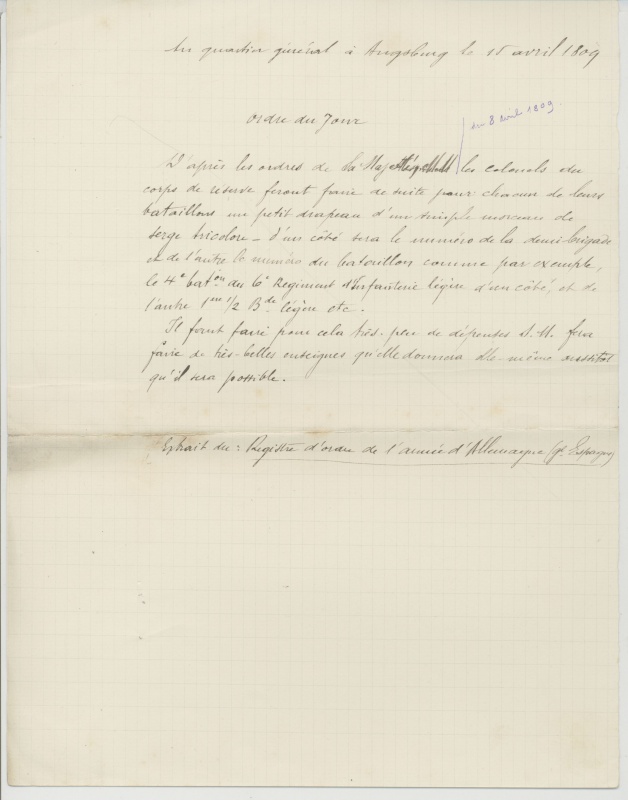 Au quartier général à Augsburg le 15 avril 1809
Ordre du Jour
du 8 avril 1809.
D'après les ordres de Sa Majesté les colonels du
corps de réserve feront faire de suite pour chacun de leurs
bataillons un petit drapeau d'un simple morceau de
serge tricolore — d'un côté sera le numéro de la demi-brigade
et de l'autre le numéro du bataillon comme par exemple,
le 4e batон du 6e Régiment d'Infanterie légère d'un côté, et de
l'autre 1ère 1/2 Bde légère etc.
Il faut faire pour cela très-peu de dépenses S.M. fera
faire de très-belles enseignes qu'elle donnera elle-même aussitôt
qu'il sera possible.
Extrait du : Registre d'ordre de l'armée d'Allemagne (gl Espagne)